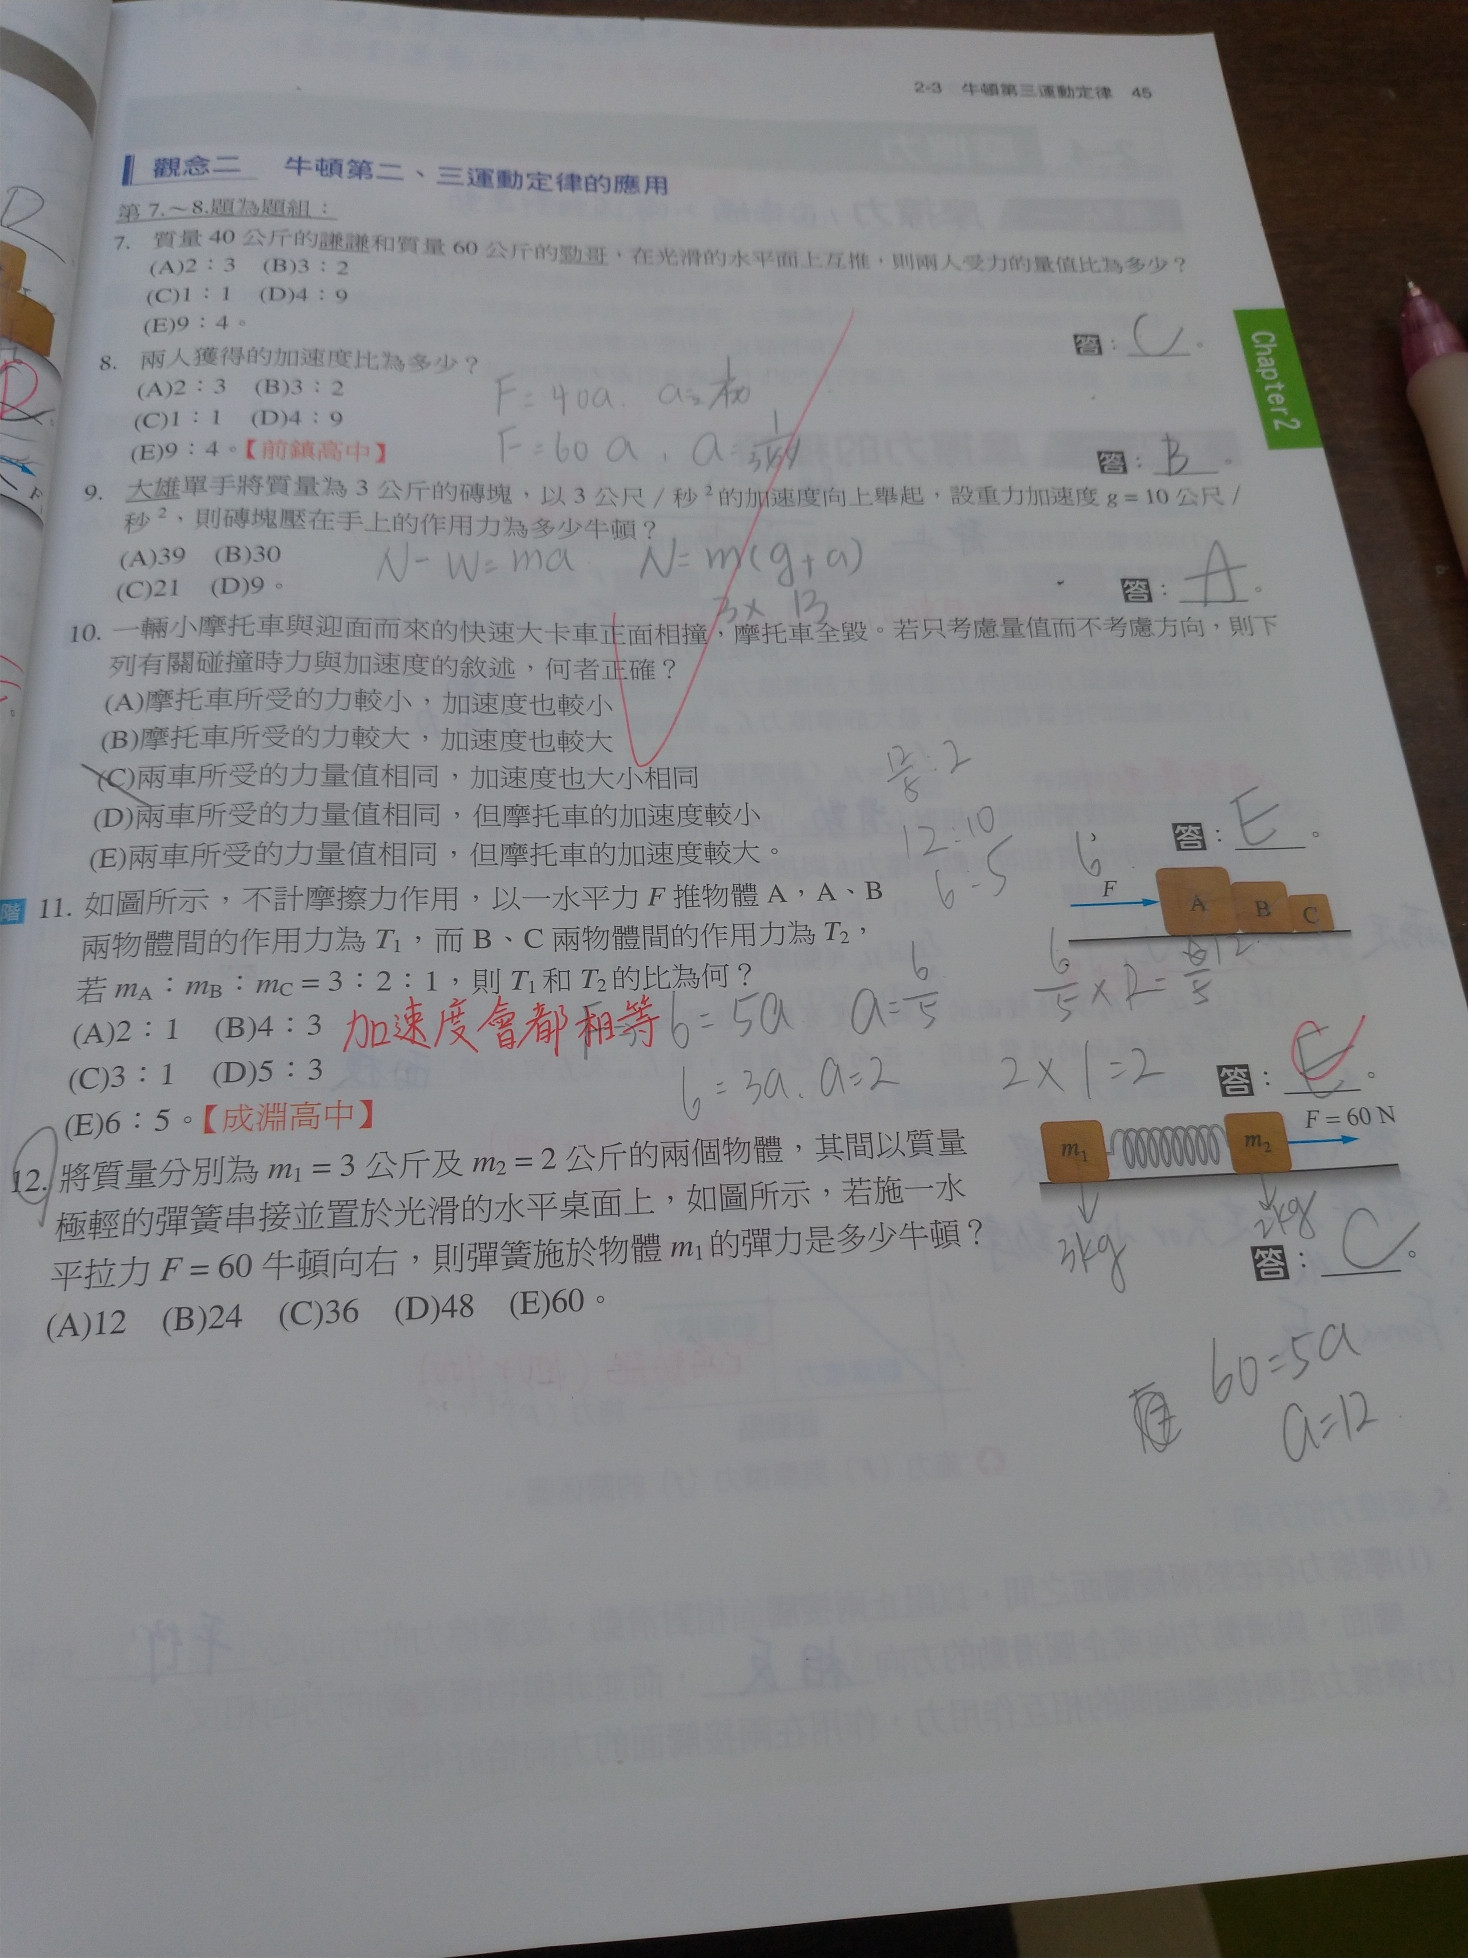 2-3 牛頓第三運動定律 45
觀念二 牛頓第二、三運動定律的應用
第 7.~8.題為題組：
7. 質量 40 公斤的謙謙和質量 60 公斤的勁哥，在光滑的水平面上互推，則兩人受力的量值比為多少？
(A)2：3 (B)3：2
(C)1：1 (D)4：9
(E)9：4。
答：C。
8. 兩人獲得的加速度比為多少？
(A)2：3 (B)3：2
(C)1：1 (D)4：9
(E)9：4。【前鎮高中】
F=40a. a=1/40
F=60a, a=
答：B。
Chapter 2
9. 大雄單手將質量為 3 公斤的磚塊，以 3 公尺／秒²的加速度向上舉起，設重力加速度 g = 10 公尺／
秒²，則磚塊壓在手上的作用力為多少牛頓？
(A)39 (B)30
(C)21 (D)9。
N-W=ma N=m(g+a)
3×13
答：A。
10. 一輛小摩托車與迎面而來的快速大卡車正面相撞，摩托車全毀。若只考慮量值而不考慮方向，則下
列有關碰撞時力與加速度的敘述，何者正確？
(A)摩托車所受的力較小，加速度也較小
(B)摩托車所受的力較大，加速度也較大
(C)兩車所受的力量值相同，加速度也大小相同
(D)兩車所受的力量值相同，但摩托車的加速度較小
(E)兩車所受的力量值相同，但摩托車的加速度較大。
答：E。
12/5:2
12:10
6:5
6
F A B C
階 11. 如圖所示，不計摩擦力作用，以一水平力 F 推物體 A，A、B
兩物體間的作用力為 T₁，而 B、C 兩物體間的作用力為 T₂，
若 mA：mB：mC = 3：2：1，則 T₁ 和 T₂ 的比為何？
(A)2：1 (B)4：3
(C)3：1 (D)5：3
(E)6：5。【成淵高中】
加速度會都相等
6=5a a=6/5
6=3a. a=2
2×1=2
答：E。
12. 將質量分別為 m₁ = 3 公斤及 m₂ = 2 公斤的兩個物體，其間以質量
極輕的彈簧串接並置於光滑的水平桌面上，如圖所示，若施一水
平拉力 F = 60 牛頓向右，則彈簧施於物體 m₁ 的彈力是多少牛頓？
(A)12 (B)24 (C)36 (D)48 (E)60。
m₁ m₂ F = 60 N
3kg 2kg
答：C。
60=5a
a=12